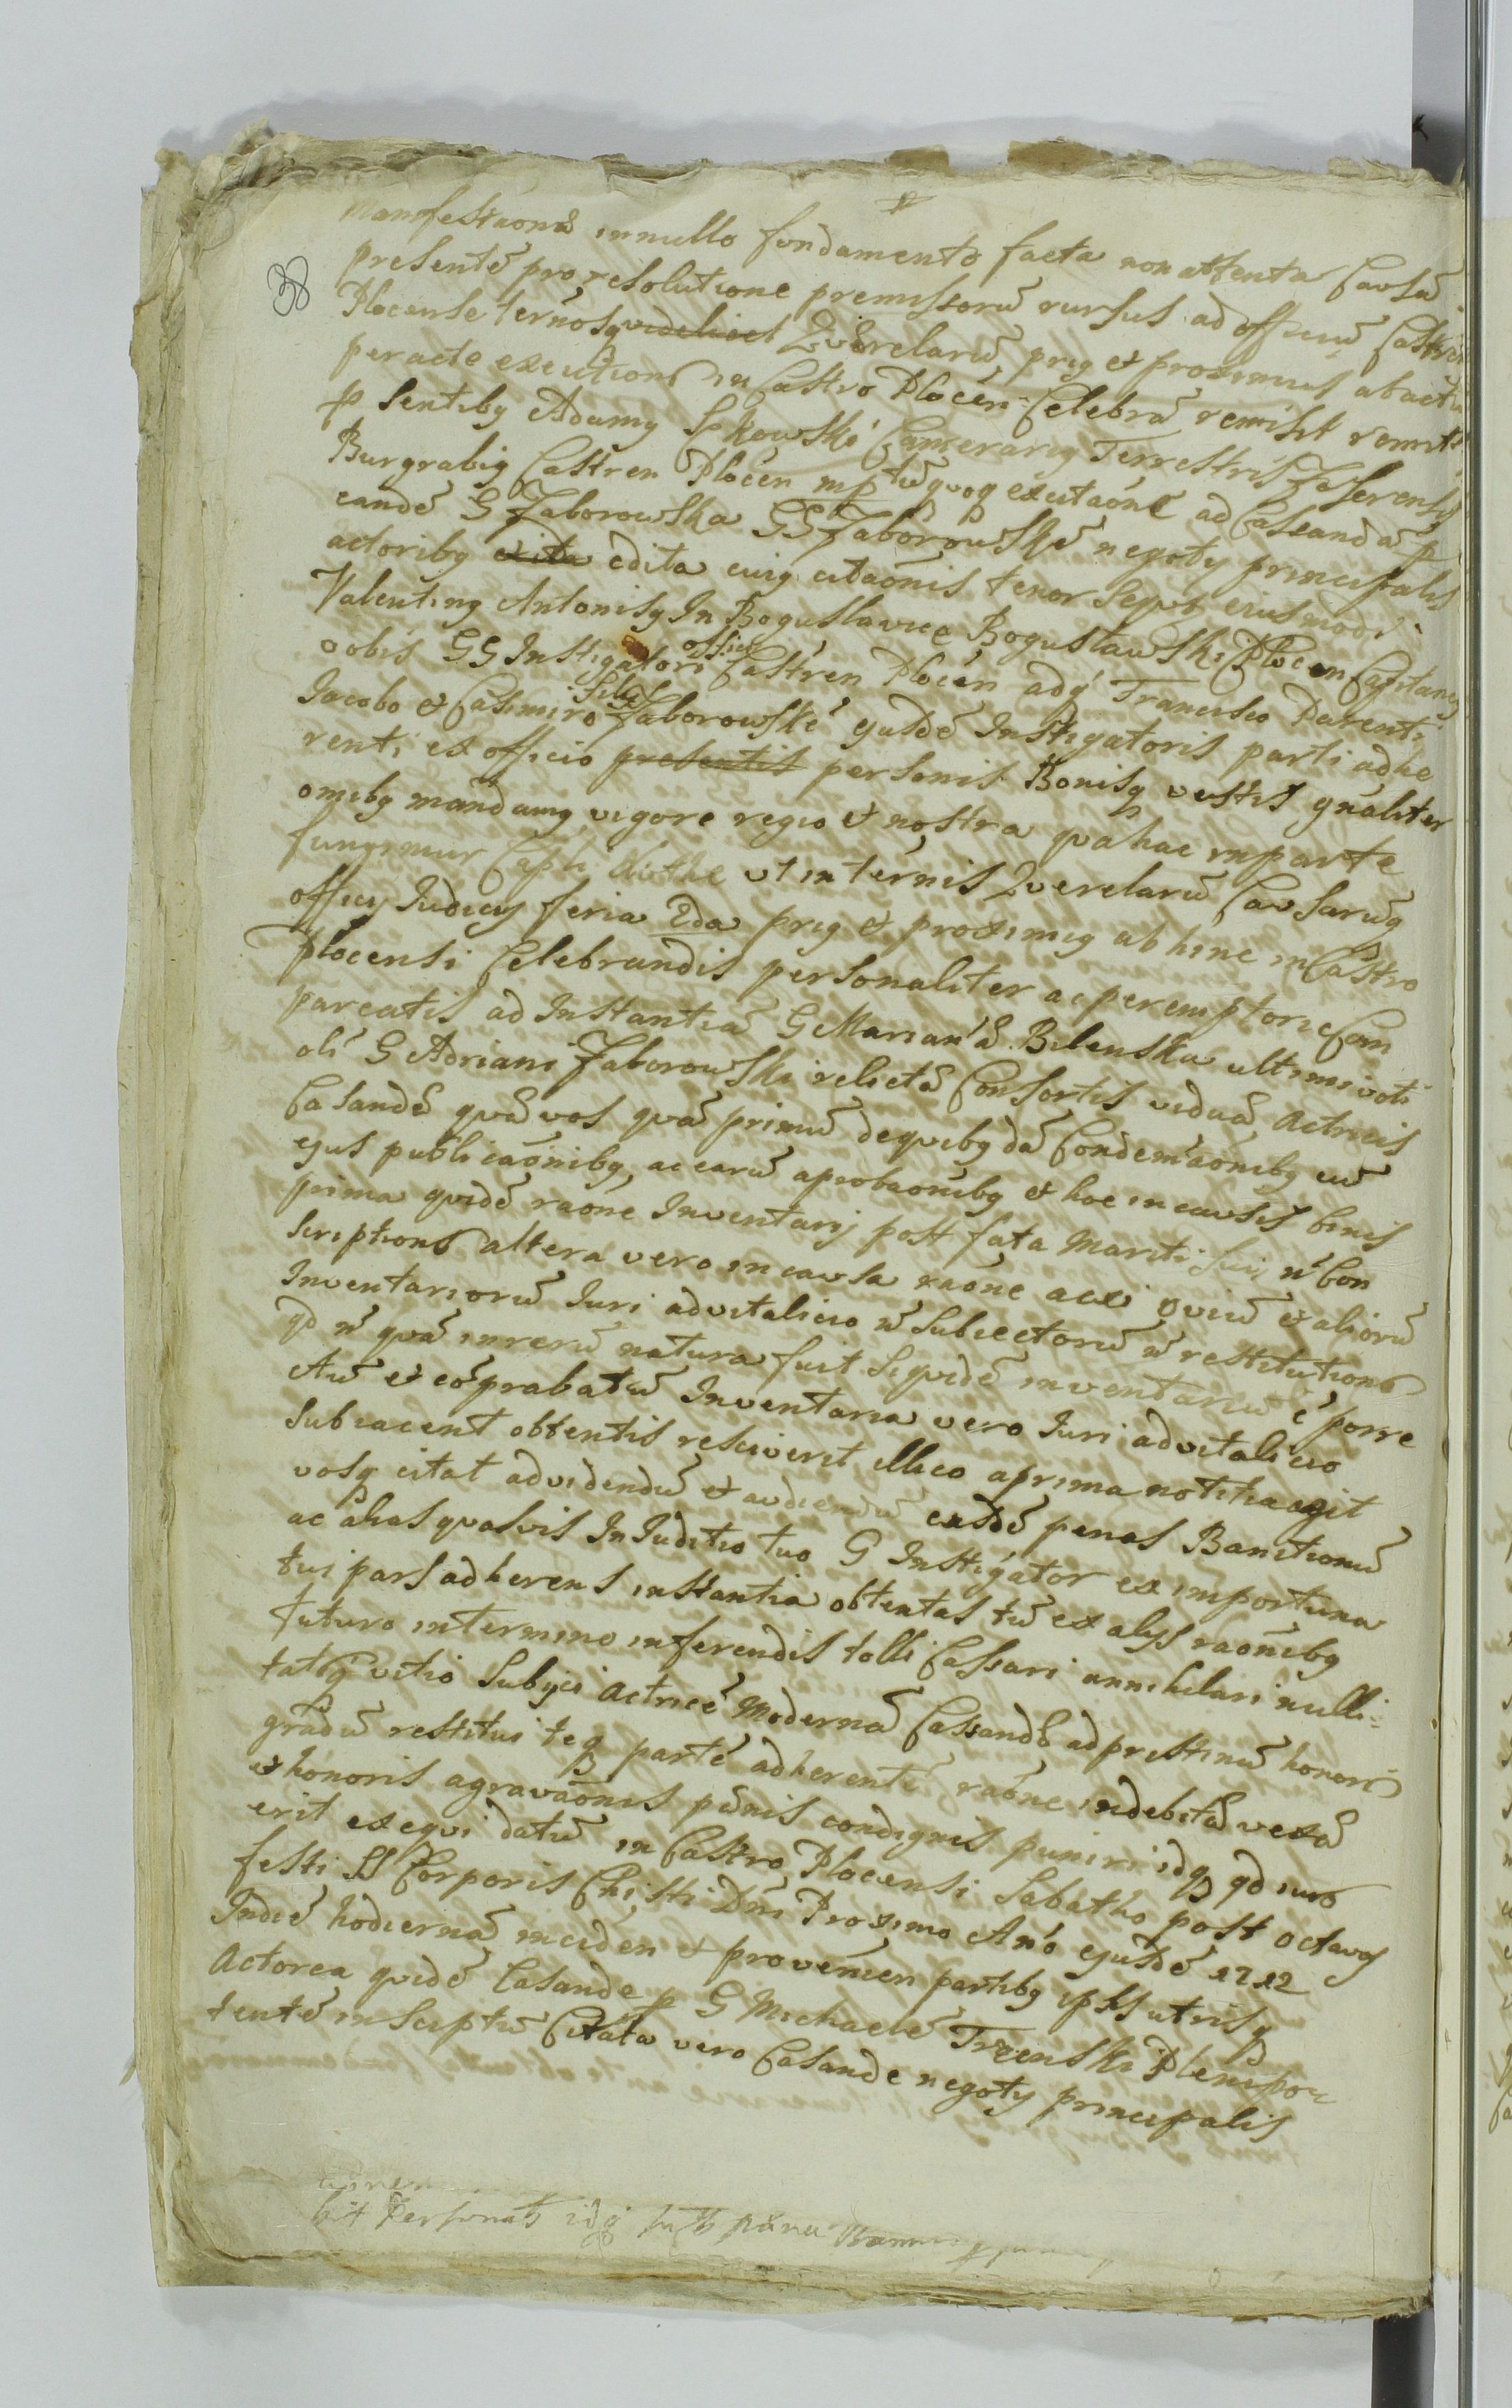 38
Manifestaone in nullo fundamento facta non attenta Causã
presentẽ pro resolutione premissorũ rursus ad officiũ Castren
Plocense ternosq videlicet Qverelarũ prig et proximius ab actu
peracte executionis in Castro Plocen Celebrã remisit remitt
p Sentiby Adamg Camerarig Terrestris
Burgrabig Castren Plocen mp tũ qvoq citaõne ad Cassandã p
eandẽ G Zaborowska GG Zaborowskẽ negoty principalis
actoriby exita edita cuig citaõnis tenor Seqvt eiusmodi
Valenting Antonisg In Boguslavice Boguslawski Plocen Capitang
vobis GG Instigatori officy Castren Plocen adq Francisco Parenti
Jacobo et Casimiro filys Zaborowskẽ ejusdẽ Instigatoris parti adhe
renti ex officio presentis personis Bonisq vestis gnaliter
omiby mandamg vigore regio et nostra qva hac in parte
fungimur Capli Authe ut in ternis Qverelarũ Causarũq
officy Judicy feria 2da prig et proximig ab hinc in Castro
Plocensi Celebrandis personaliter ac peremptorie Com
pareatis ad Instantiã G Mariannã Bilenska ultimi voti
oli G Adriani Zaborowski relictã Consortis viduã Actricis
Casandẽ qvã vos qvã primũ de qviby dã Condemnaõniby cũ
ejus publicaõniby ac earũ aprobaoniby et hoc in causis binis
prima qvidẽ raõne Inventarij post fata Mariti sui ñ Con
scriptione altera vero in causa raõne acxi oviũ et aliorũ
Inventariorũ Juri advitalicio ñ Subiectorũ ñ restitutione
qd ñ qvã in rerũ natura fuit Siqvidẽ inventariũ ẽ porre
ctũ et cõprabatũ Inventaria vero Juri advitalicio
Subiacent obtentis resciverit illico a prima notitia agit
vosq citat ad videndũ et audiendũ easdẽ penas Banitionũ
ac alias qvasvis In Juditio tuo G Instigator ex importuna
tui pars adherens instantia obtentas tũ ex alys raõniby
futuro in termino inferendis tolli Cassari annihilari nulli=
tatisq vitio Subijci Actricẽ Modernã Cassandẽ ad prestinũ honoris
gradũ restitui teq partẽ adherentẽ raõne indebitã vexã
et honoris agravaõnis pẽnis condignis puniri idq qd iuris
erit exeqvi datũ in Castro Plocensi Sabatho post octavas
festi SS Corporis Christi Dni Proximo Año ejusdẽ 1712
In diẽ hodiernã inciden et provenien partiby ipsis utrisq
Actorea qvidẽ Casande p G Michaelẽ Trzcinski Plenipo=
tentẽ in Scriptũ Citata vero Casande negoty principalis
bit